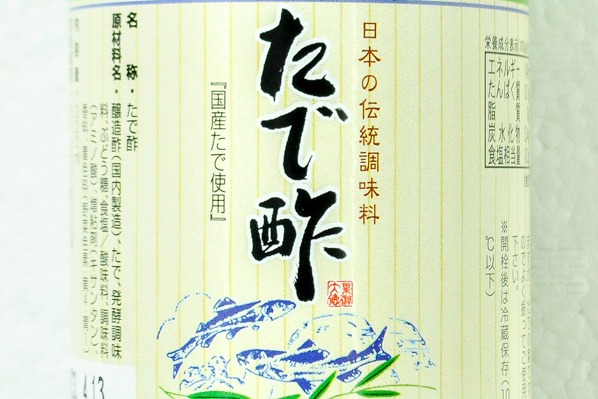 日本の伝統調味料
たで酢
『国産たで使用』
名称・たで酢
原材料名・醸造酢(国内製造)、たで、発酵調味
料、ぶどう糖、食塩/酸味料、調味料
(アミノ酸)、増粘剤(キサンタン)、
栄養成分表示
エネルギー
たんぱく質
脂質
炭水化物
食塩相当量
下さい。
※開栓後は冷蔵保存(10
℃以下)
4.13